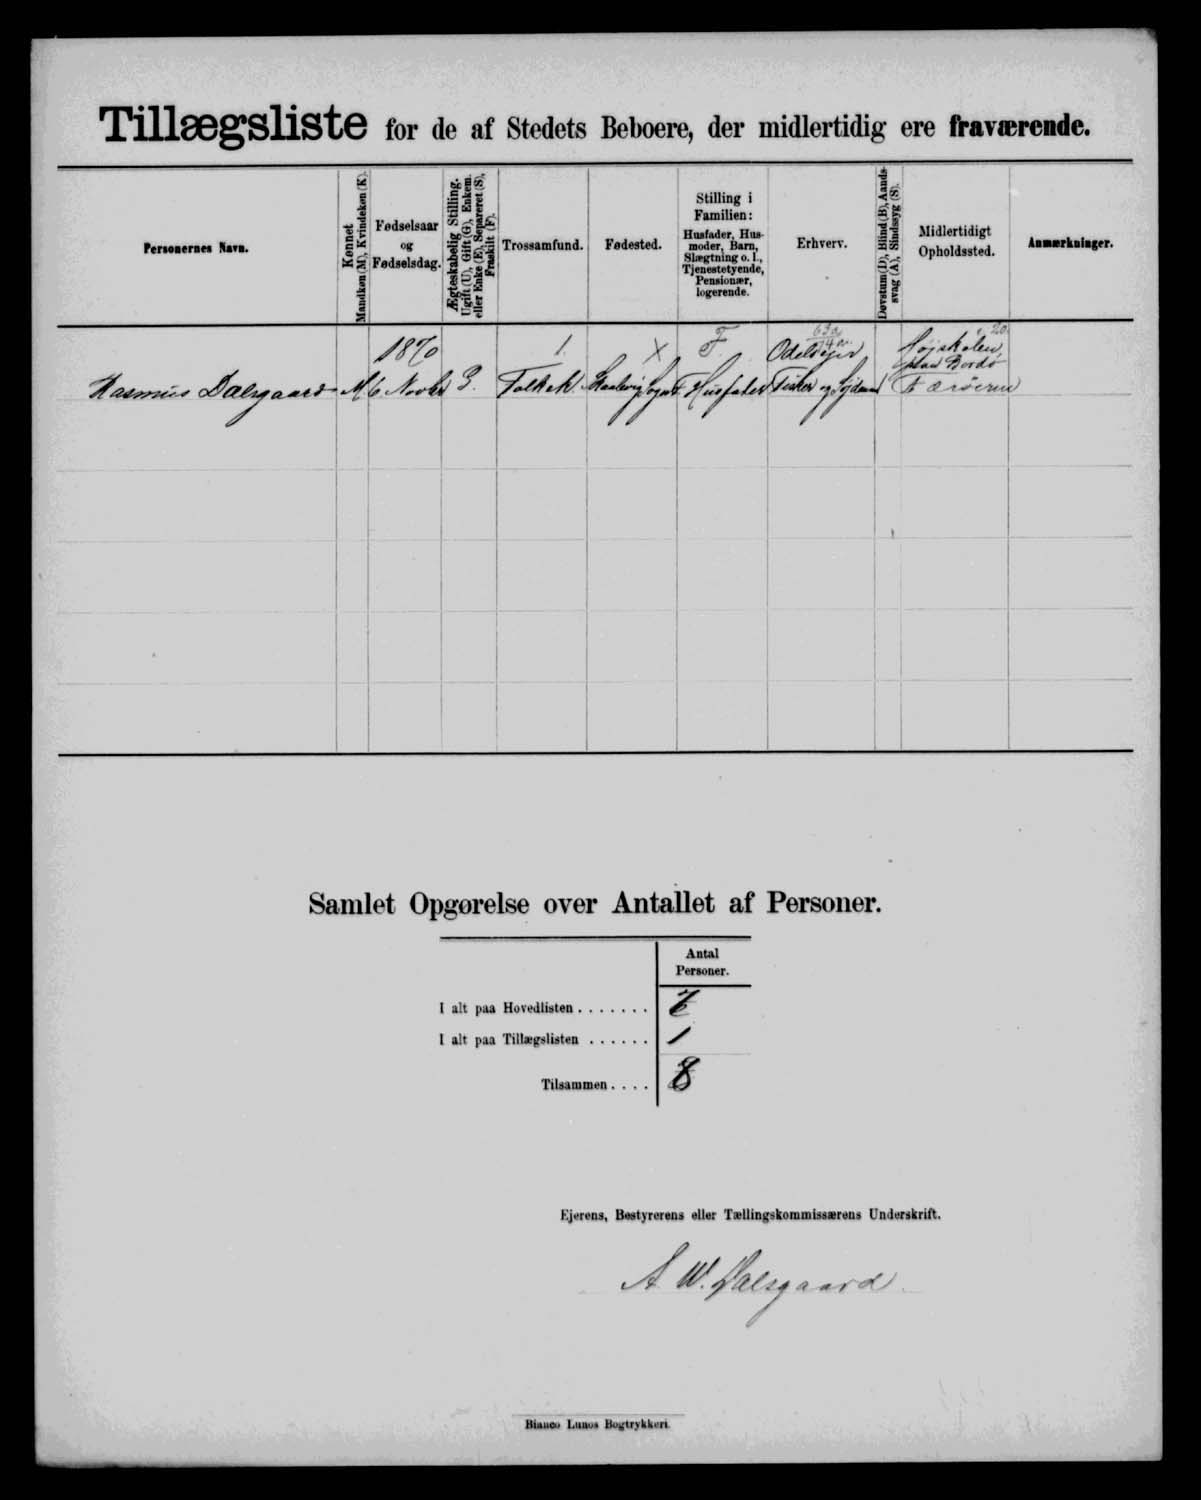 Tillægsliste for de af Stedets Beboere, der midlertidig ere fraværende.
Personernes Navn.
Kønnet
Mandkøn (M), Kvindekøn (K).
Fødselsaar
og
Fødselsdag.
Ægteskabelig Stilling.
Ugift (U), Gift (G), Enkem.
eller Enke (E), Separeret (S),
Fraskilt (F).
Trossamfund.
Fødested.
Stilling i
Familien:
Husfader, Hus-
moder, Barn,
Slægtning o. l.,
Tjenestetyende,
Pensionær,
logerende.
Erhverv.
Døvstum (D), Blind (B), Aands-
svag (A), Sindssyg (S).
Midlertidigt
Opholdssted.
Anmærkninger.
Rasmus Dalsgaard
M
1870
6 Novbr
G.
1.
Folkek.
X
Skaalevig Sogn
F.
Husfader
Odelsejer
Fisker og Sjømand
20
Højskolen
paa Bordö
Færöerne
Samlet Opgørelse over Antallet af Personer.
Antal
Personer.
I alt paa Hovedlisten . . . . . . . 7
I alt paa Tillægslisten . . . . . . 1
Tilsammen . . . . 8
Ejerens, Bestyrerens eller Tællingskommissærens Underskrift.
A. W. Dalsgaard
Bianco Lunos Bogtrykkeri.